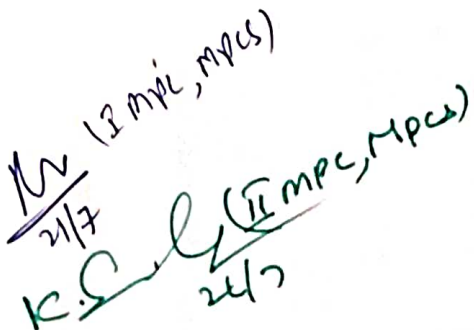 (I MPC, MPCS)
21/7
K.S (II MPC, MPCS)